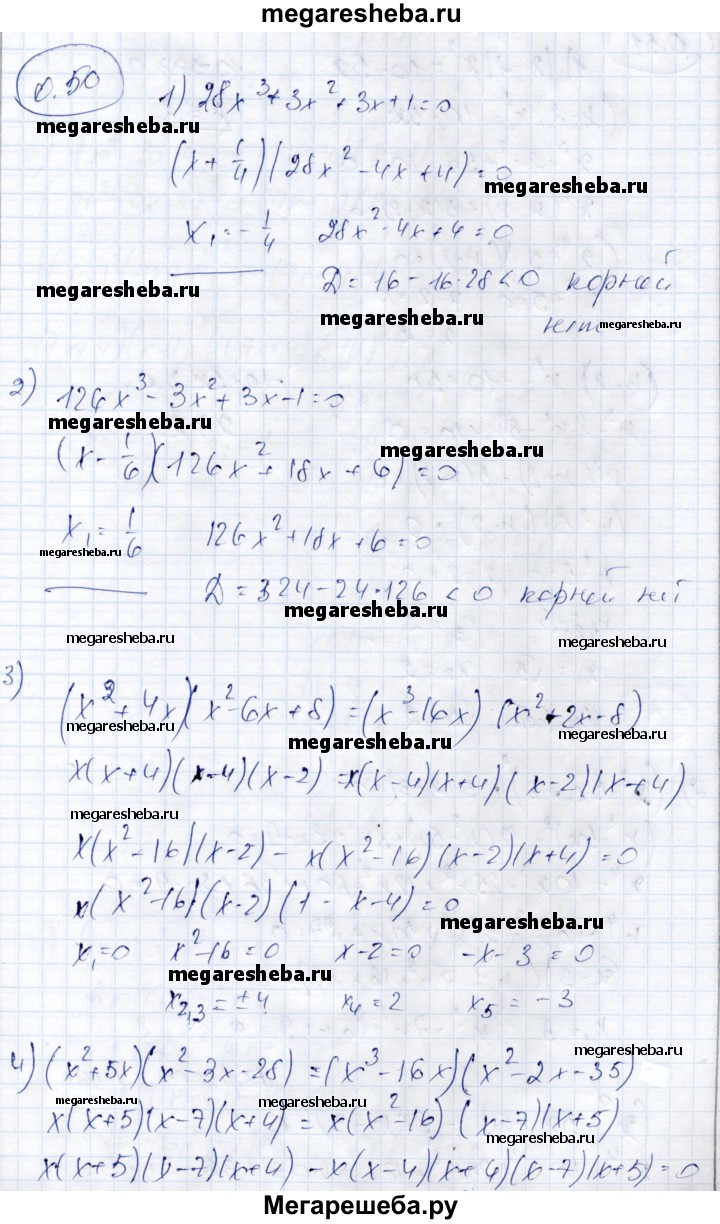 megaresheba.ru
0.50
1) 28x³+3x²+3x+1=0
megaresheba.ru
(x+1/4)(28x²-4x+4)=0
megaresheba.ru
x₁=-1/4 28x²-4x+4=0
megaresheba.ru
D=16-16·28<0 корней
megaresheba.ru
нет
megaresheba.ru
2) 126x³-3x²+3x-1=0
megaresheba.ru
megaresheba.ru
(x-1/6)(126x²+18x+6)=0
x₁=1/6 126x²+18x+6=0
megaresheba.ru
D=324-24·126<0 корней нет
megaresheba.ru
megaresheba.ru
megaresheba.ru
3) (x²+4x)(x²-6x+8)=(x³-16x)(x²+2x-8)
megaresheba.ru
megaresheba.ru
x(x+4)(x-4)(x-2)=x(x-4)(x+4)(x-2)(x+4)
megaresheba.ru
megaresheba.ru
x(x²-16)(x-2)-x(x²-16)(x-2)(x+4)=0
x(x²-16)(x-2)(1-x-4)=0
megaresheba.ru
x₁=0 x²-16=0 x-2=0 -x-3=0
megaresheba.ru
x₂,₃=±4 x₄=2 x₅=-3
megaresheba.ru
4) (x²+5x)(x²-3x-28)=(x³-16x)(x²-2x-35)
megaresheba.ru
megaresheba.ru
x(x+5)(x-7)(x+4)=x(x²-16)(x-7)(x+5)
megaresheba.ru
x(x+5)(x-7)(x+4)-x(x-4)(x+4)(x-7)(x+5)=0
Мегарешеба.ру